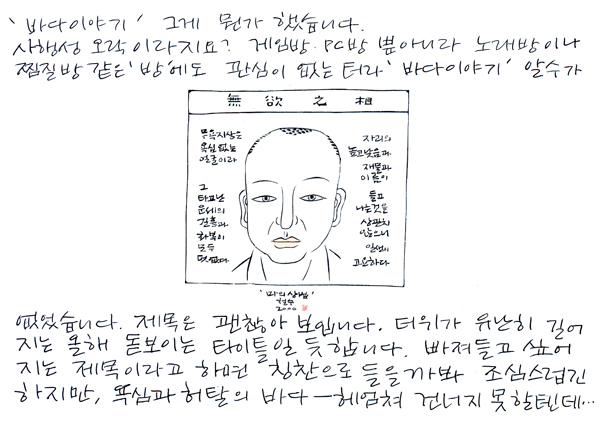 '바다이야기' 그게 뭔가 했습니다.
사행성 오락이라지요? 게임방·PC방 뿐아니라 노래방이나
찜질방 같은 '방'에도 관심이 없는 터라 '바다이야기' 알수가
無欲之相
무욕지상은
욕심없는
얼굴이라
그
타고난
운세의
길흉과
화복이
모두
덧없다.
자리의
높고낮음과
재물과
이름이
들고
나는것을
상관치
않으니
일생이
고요하다.
'마의상법'
철수
2000
없었습니다. 제목은 괜찮아 보입니다. 더위가 유난히 길어
지는 올해 돋보이는 타이틀일 듯합니다. 빠져들고 싶어
지는 제목이라고 하면 칭찬으로 들을가봐 조심스럽긴
하지만, 욕심과 허탈의 바다—헤엄쳐 건너지 못할텐데…